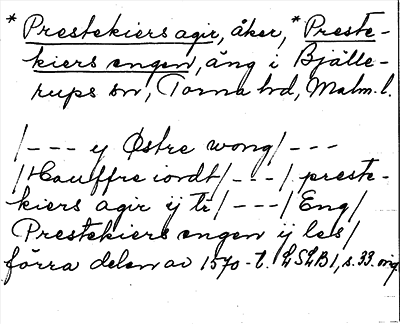 * Prestekiers agir, åker, * Preste-
kiers engen, äng i Bjälle-
rups sn, Torna hd, Malm. l.
/--- y Østre wong/---
/Hauffre iordt/---/ preste-
kiers agir ij tr/---/Eng/
Prestekiers engen ij les/
förra delen av 1570-t. LSLB1, s. 33. orig